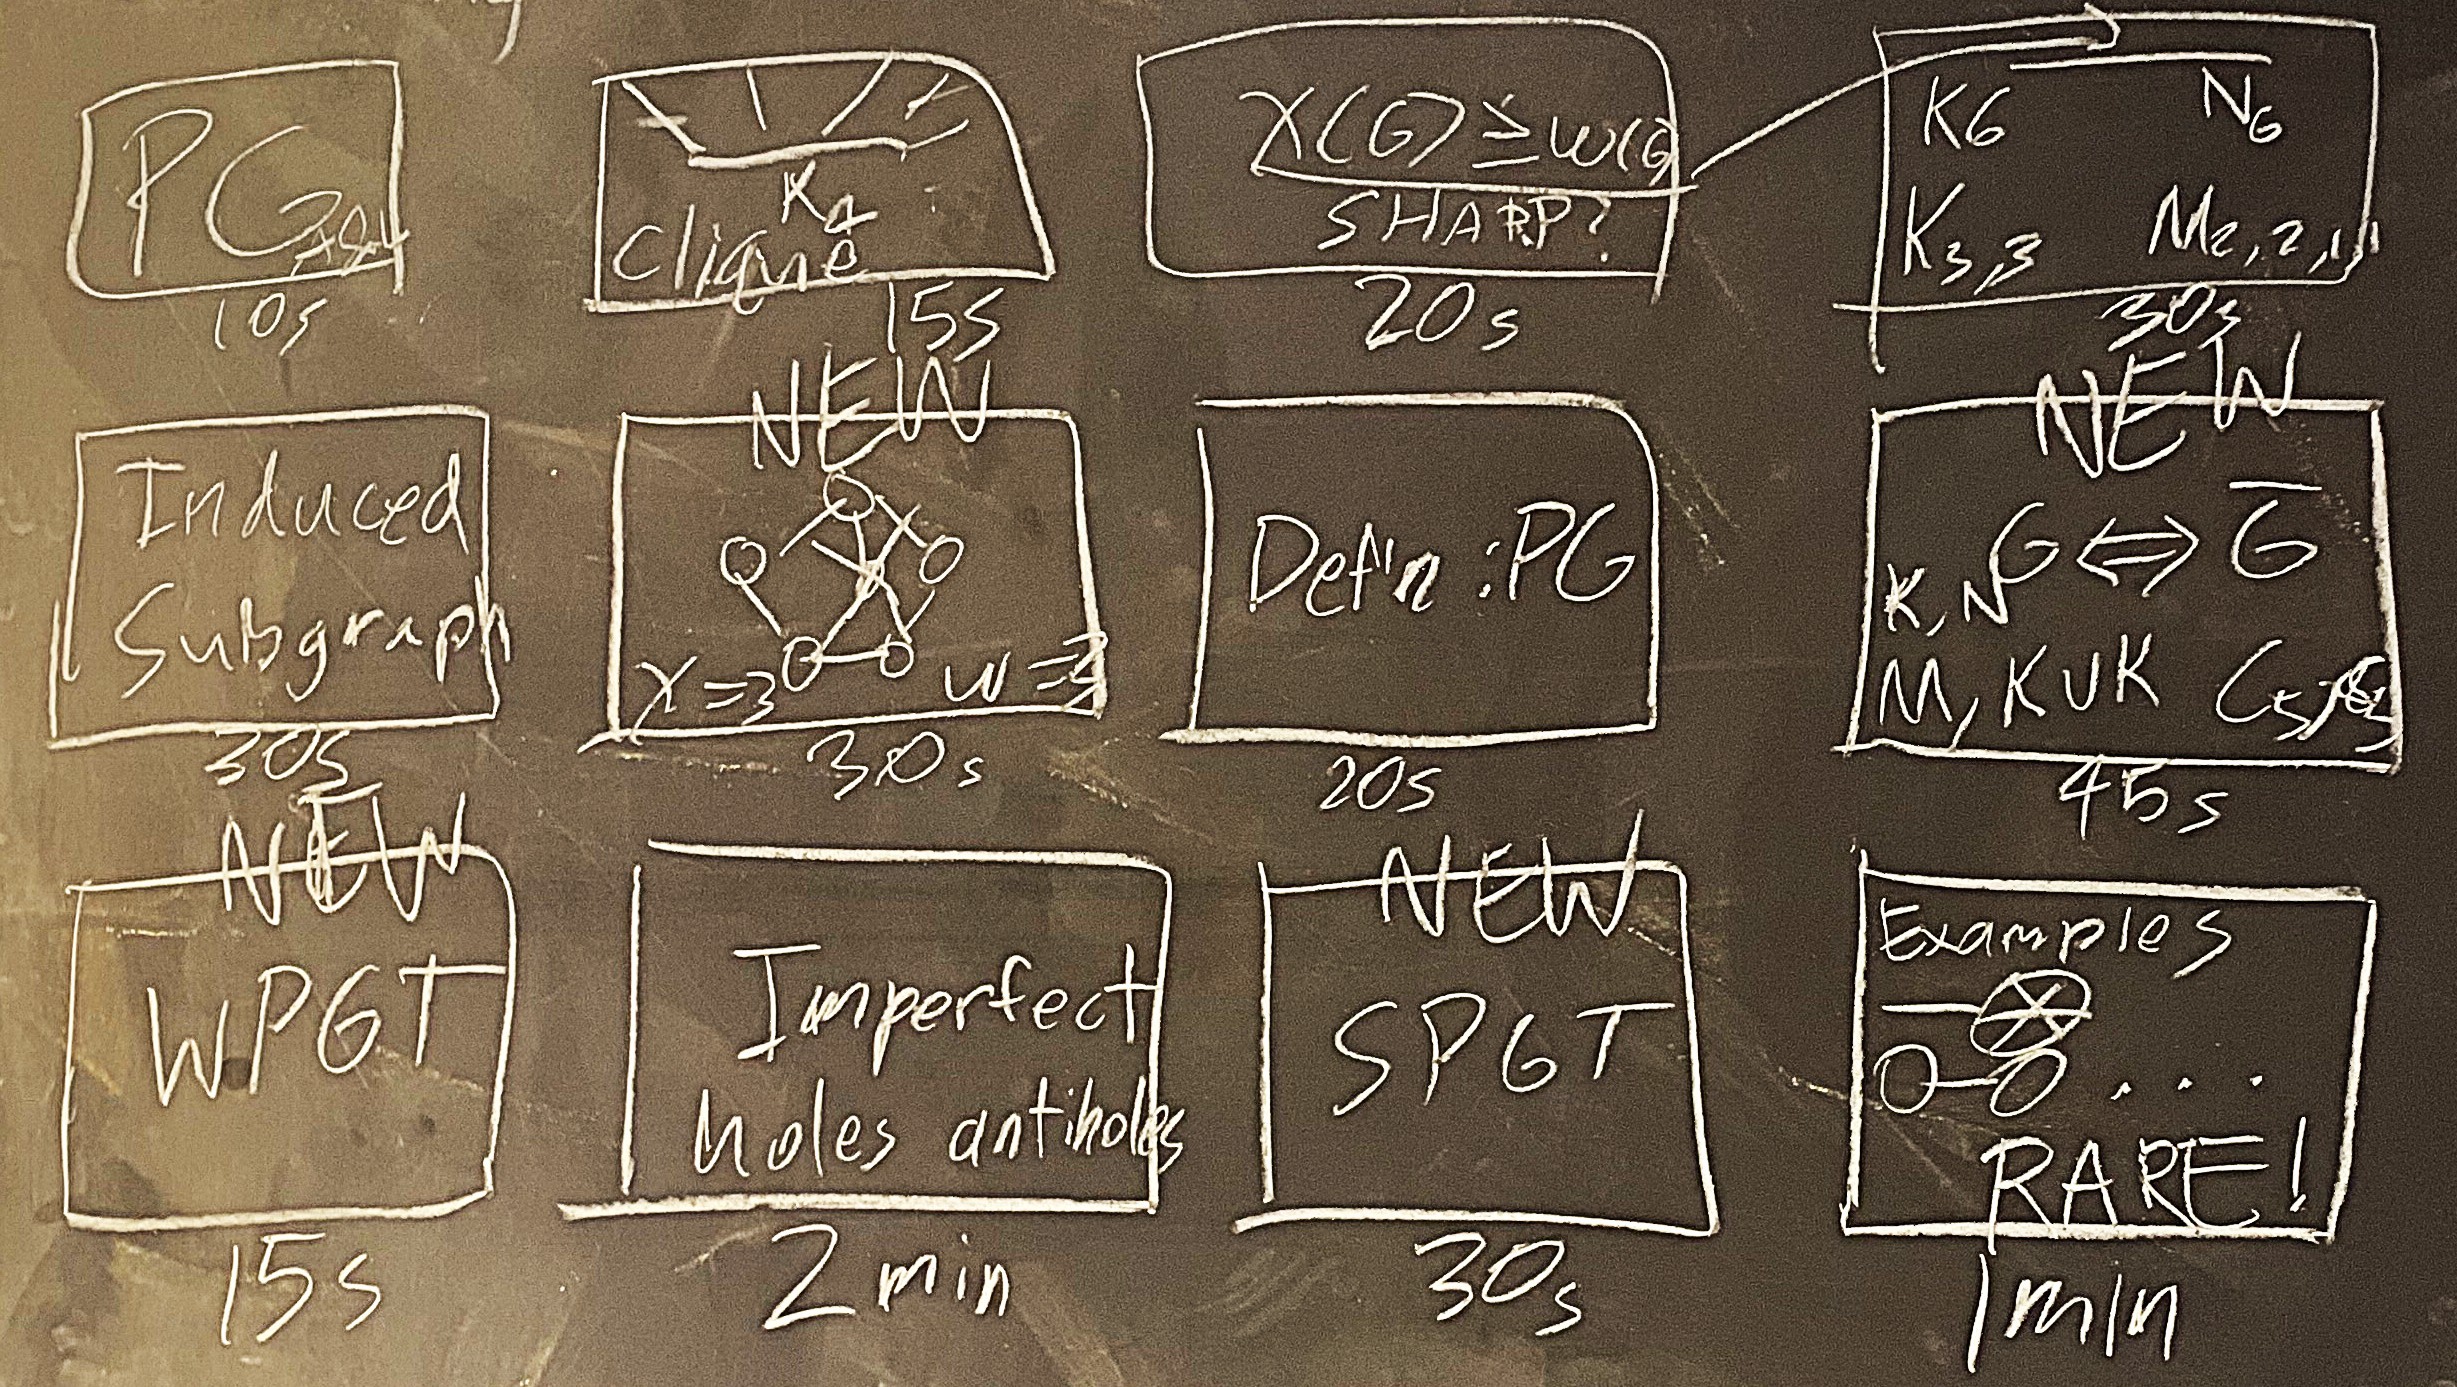 PG
10s
K4
Clique
15s
χ(G) ≥ ω(G)
SHARP?
20s
K6 N6
K3,3 M2,2,1,1
30s
Induced
Subgraph
30s
NEW
χ=3 ω=3
30s
Defn: PG
20s
NEW
G ⇔ G̅
K, N
M, K∪K C5,
45s
NEW
WPGT
15s
Imperfect
holes antiholes
2 min
NEW
SPGT
30s
Examples
...
RARE!
1 min